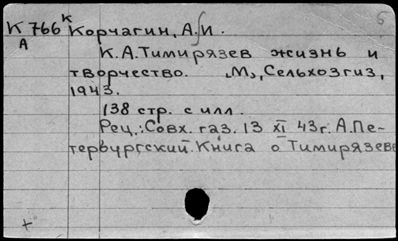 К 766 к Корчагин, А.И.
А
К.А.Тимирязев жизнь и
творчество. М., Сельхозгиз,
1943.
138 стр. с илл.
Рец.: Совх. газ. 13 XI 43г. А.Пе-
тербургский. Книга о Тимирязеве
+